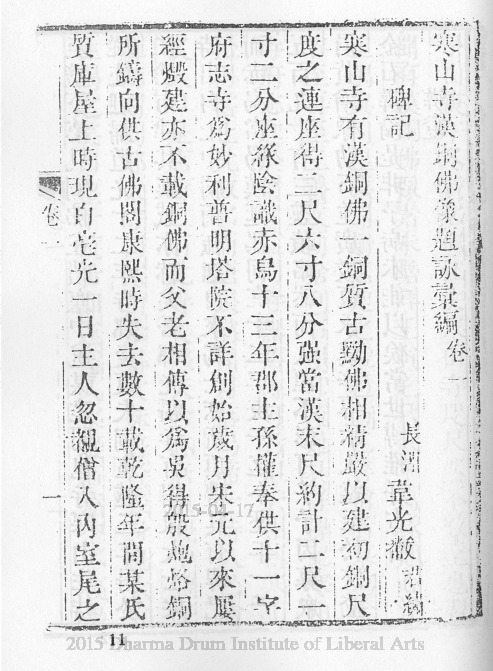 寒山寺漢銅佛像題詠彙編卷一
長洲 韋光黻 君繡
碑記
寒山寺有漢銅佛一銅質古黝佛相精嚴以建初銅尺
度之連座得二尺六寸八分強當漢末尺約計二尺一
寸二分座緣陰識赤烏十三年郡主孫權奉供十一字
府志寺爲妙利普明塔院不詳創始歲月宋元以來屢
經燬建亦不載銅佛而父老相傳以爲吳得殷炮烙銅
所鑄向供古佛閣康熙時失去數十載乾隆年間某氏
質庫屋上時現白毫光一日主人忽覩僧入內室尾之
卷一
一
2015-04-17
11
2015 Dharma Drum Institute of Liberal Arts